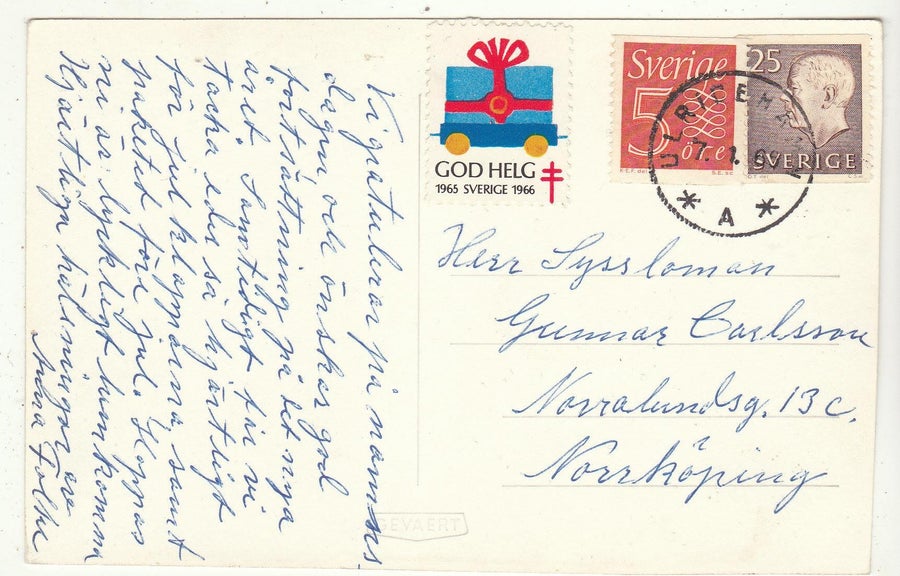 Vi gratulerar på namns-
dagen och önskar god
fortsättning på det nya
året. Samtidigt får vi
tacka eder så hjärtligt
för julklapparna samt
paketet före jul. Hoppas
ni är lyckligt hemkomna
Hjärtliga hälsningar era
Anna Folke
GOD HELG
1965 SVERIGE 1966
Sverige
5 öre
25
SVERIGE
ULRICEHAMN
7. 1. 66
* A *
Herr Syssloman
Gunnar Carlsson
Norralundsg. 13 c.
Norrköping
GEVAERT